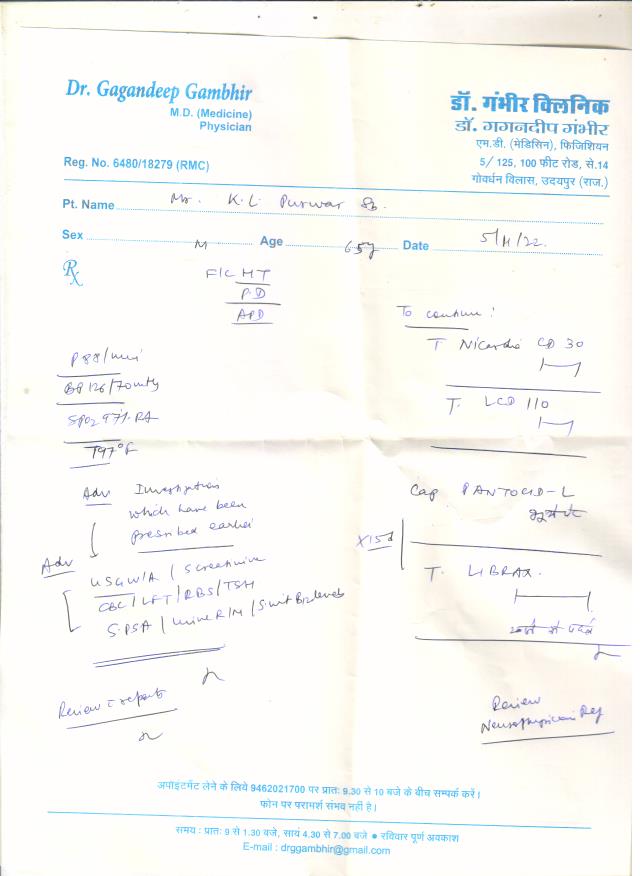 Dr. Gagandeep Gambhir
M.D. (Medicine)
Physician
Reg. No. 6480/18279 (RMC)
डॉ. गंभीर क्लिनिक
डॉ. गगनदीप गंभीर
एम.डी. (मेडिसिन), फिजिशियन
5/ 125, 100 फीट रोड, से.14
गोवर्धन विलास, उदयपुर (राज.)
Pt. Name Mr. K.L. Purwar Sb.
Sex M Age 65y Date 5/11/22.
Rx
F/C HT
PD
APD
P 88/min
BP 126/70 mmHg
SPO2 97% RA
T97°F
Adv Investigation
which have been
prescribed earlier
Adv
USG W/A / Screening
CBC / LFT / RBS / TSH
S.PSA / Urine R/M / S.vit B12 levels
Review c reports
To continue :
T Nicardia CD 30
T. LCD 110
Cap PANTOCID-L
X 15 d
T. LIBRAX.
Review
Neurophysician
अपॉइंटमेंट लेने के लिये 9462021700 पर प्रातः 9.30 से 10 बजे के बीच सम्पर्क करें।
फोन पर परामर्श संभव नहीं है।
समय : प्रातः 9 से 1.30 बजे, सायं 4.30 से 7.00 बजे ● रविवार पूर्ण अवकाश
E-mail : drggambhir@gmail.com